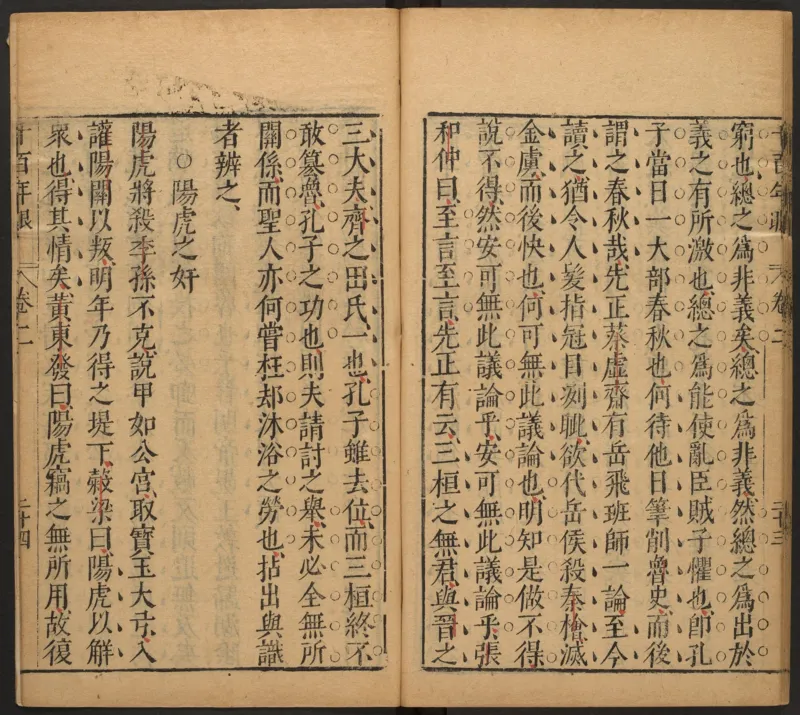 窮也總之爲非義矣總之爲非義然總之爲出於
義之有所激也總之爲能使亂臣賊子懼也卽孔
子當日一大部春秋也何待他日筆削魯史而後
謂之春秋哉先正蔡虛齋有岳飛班師一論至今
讀之猶令人髮指冠目刿眦欲代岳侯殺秦檜滅
金虜而後快也何可無此議論也明知是做不得
說不得然安可無此議論乎安可無此議論乎張
和仲曰至言至言先正有云三桓之無君與晉之
三大夫齊之田氏一也孔子雖去位而三桓終不
敢篡魯孔子之功也則夫請討之舉未必全無所
關係而聖人亦何嘗枉却沐浴之勞也拈出與識
者辨之
○陽虎之奸
陽虎將殺季孫不克說甲如公宮取寶玉大弓入
讙陽關以叛明年乃得之堤下榖梁曰陽虎以解
衆也得其情矣黃東發曰陽虎竊之無所用故復
千百年眼 卷二 二十三
千百年眼 卷二 二十四